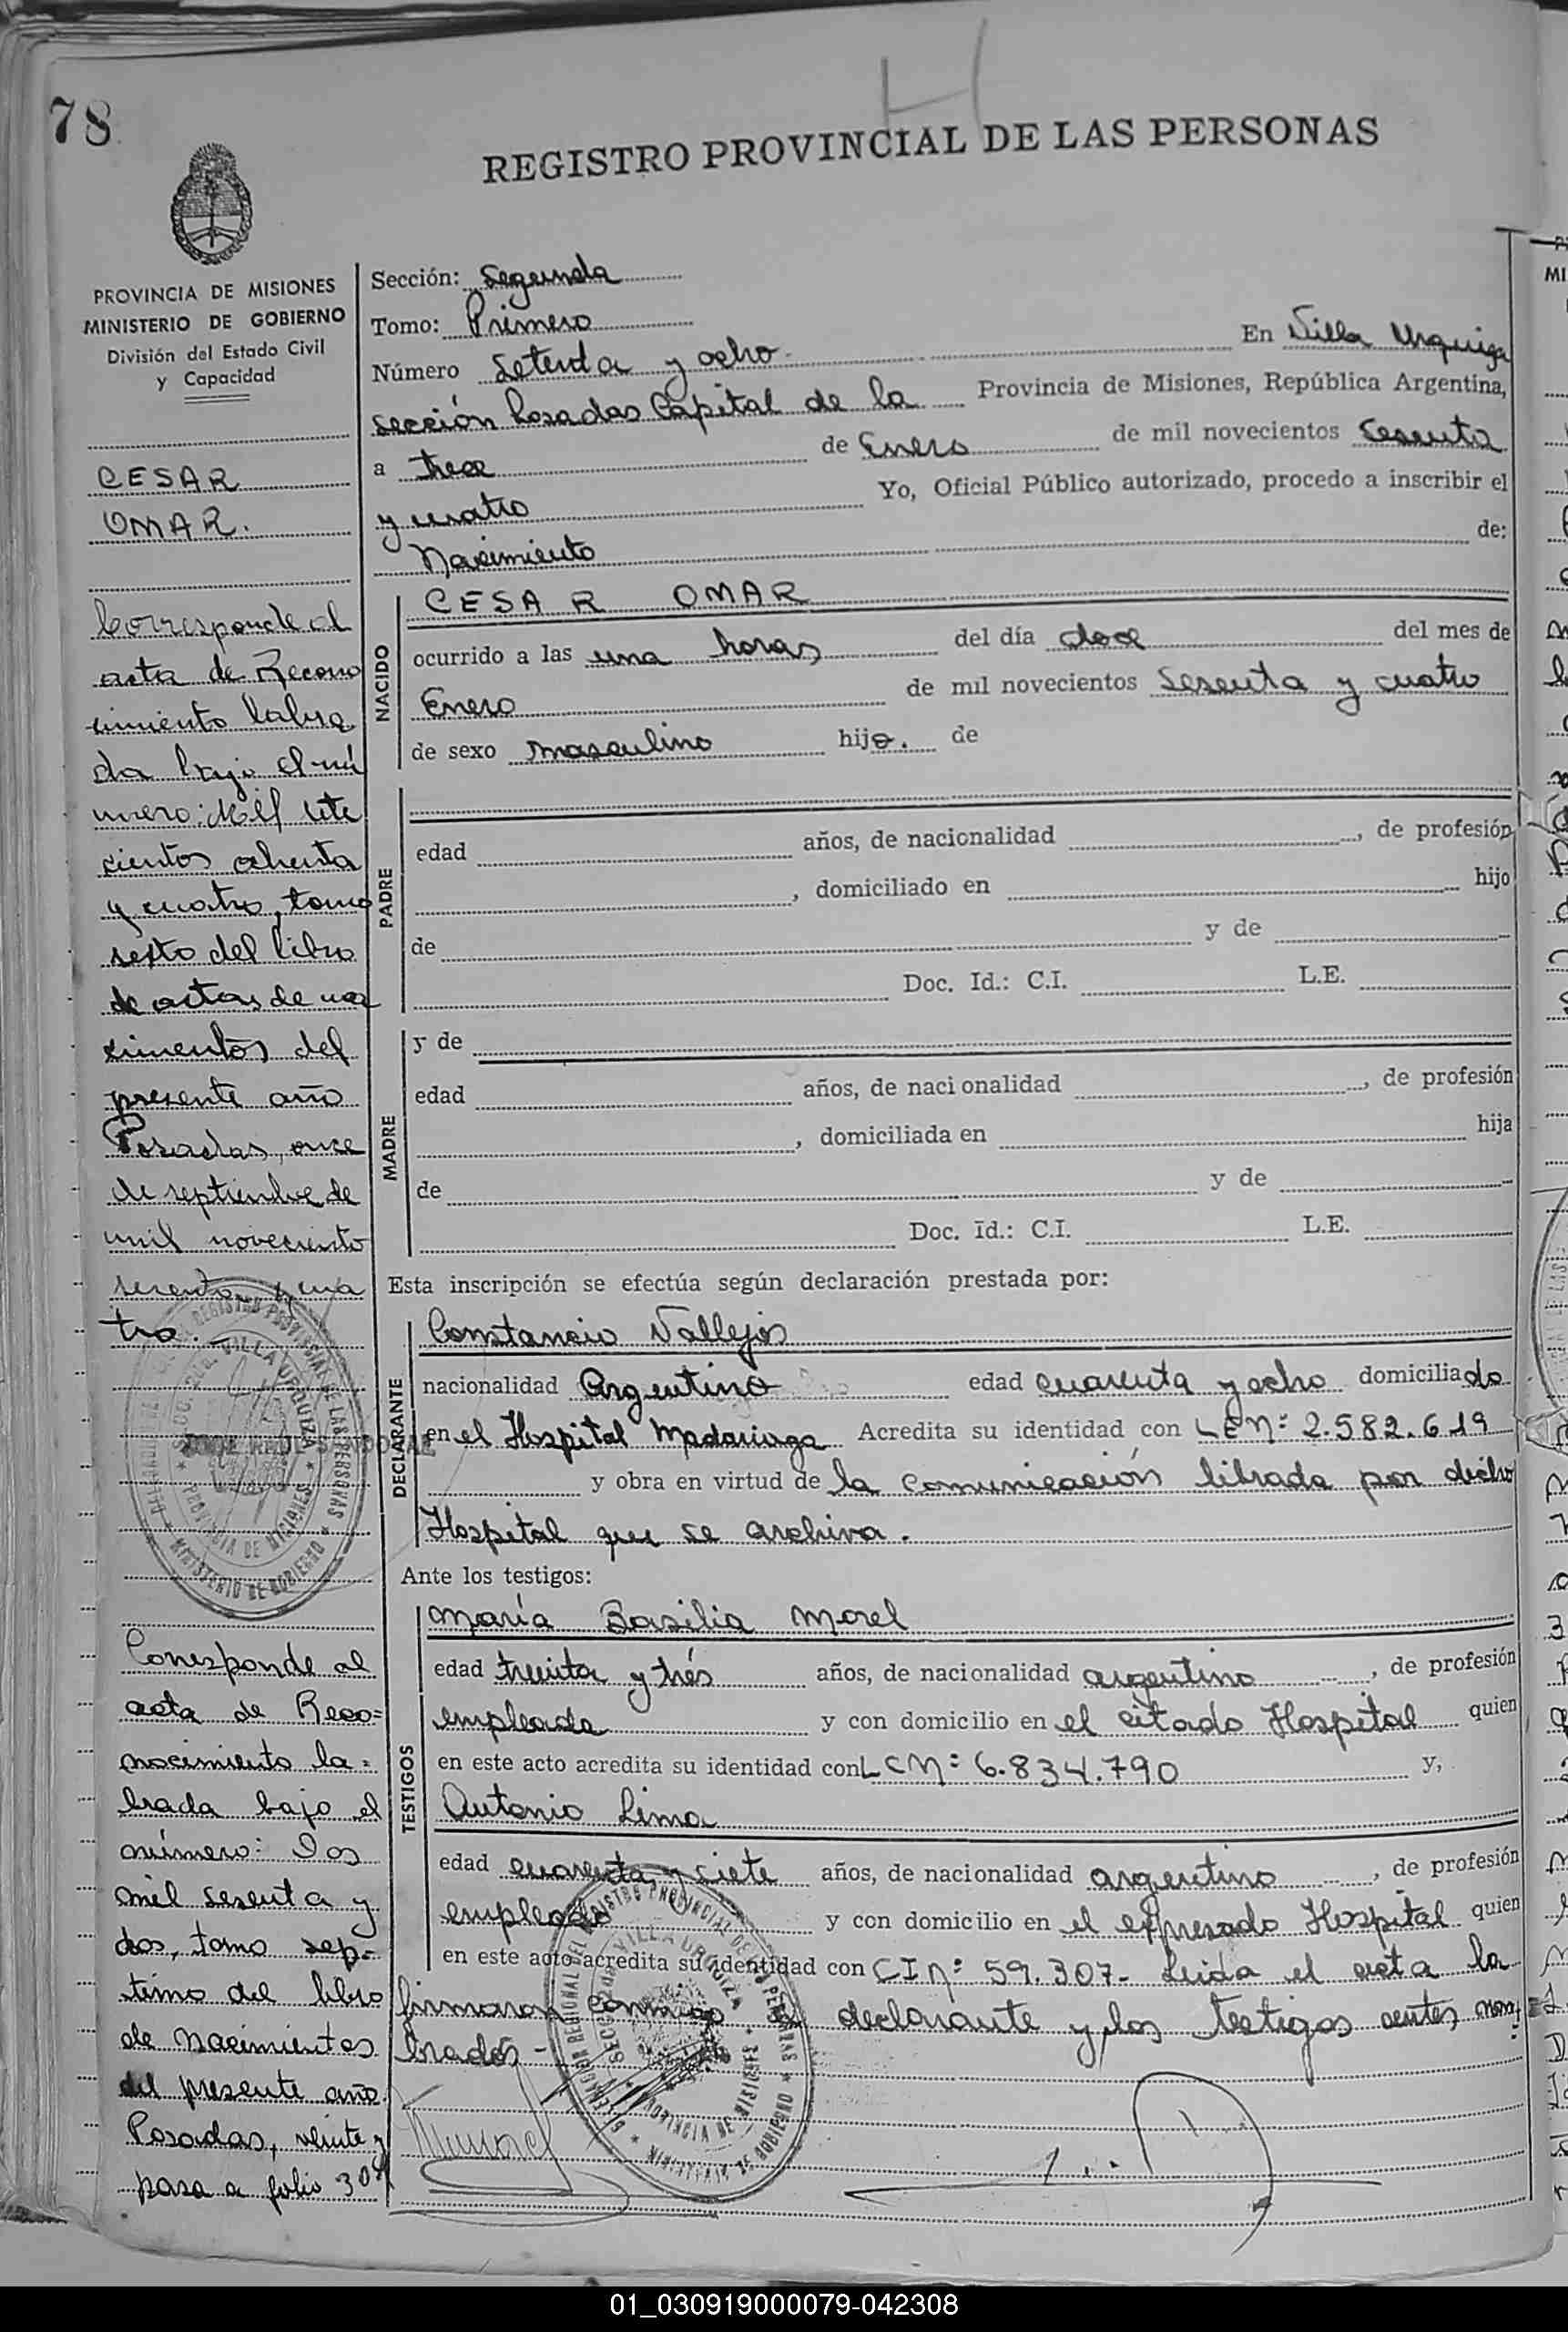 78
REGISTRO PROVINCIAL DE LAS PERSONAS
PROVINCIA DE MISIONES
MINISTERIO DE GOBIERNO
División del Estado Civil
y Capacidad
CESAR
OMAR.
Corresponde al
acta de Recono
cimiento labra
da bajo el nú
mero: Mil sete
cientos ochenta
y cuatro, tomo
sexto del libro
de actas de na
cimientos del
presente año
Posadas, once
de septiembre de
mil novecientos
sesenta y cua
tro.
Corresponde al
acta de Reco=
nocimiento la=
brada bajo el
número: Dos
mil sesenta y
dos, tomo sep=
timo del libro
de nacimientos
del presente año.
Posadas, veinte y
pasa a folio 304
Sección: Segunda
Tomo: Primero
Número Setenta y ocho. En Villa Urquiza
sección Posadas Capital de la Provincia de Misiones, República Argentina,
a trece de Enero de mil novecientos Sesenta
y cuatro Yo, Oficial Público autorizado, procedo a inscribir el
Nacimiento de:
NACIDO
CESAR OMAR
ocurrido a las una horas del día doce del mes de
Enero de mil novecientos Sesenta y cuatro
de sexo masculino hijo. de
PADRE
edad años, de nacionalidad , de profesión
, domiciliado en hijo
de y de
Doc. Id.: C.I. L.E.
MADRE
y de
edad años, de nacionalidad , de profesión
, domiciliada en hija
de y de
Doc. Id.: C.I. L.E.
Esta inscripción se efectúa según declaración prestada por:
DECLARANTE
Constancio Vallejos
nacionalidad Argentino edad cuarenta y ocho domiciliado
en el Hospital Madariaga Acredita su identidad con LEN: 2.582.619
y obra en virtud de la comunicación librada por dicho
Hospital que se archiva.
Ante los testigos:
TESTIGOS
María Basilia Morel
edad treinta y trés años, de nacionalidad argentino , de profesión
empleada y con domicilio en el citado Hospital quien
en este acto acredita su identidad con LCN: 6.834.790 y,
Antonio Lima
edad cuarenta y siete años, de nacionalidad argentino , de profesión
empleado y con domicilio en el expresado Hospital quien
en este acto acredita su identidad con CIN: 59.307- Leida el acta la
firmaron conmigo el declarante y los testigos antes nom
brados-
VILLA URQUIZA
PROVINCIA DE MISIONES
MINISTERIO DE GOBIERNO
01_030919000079-042308